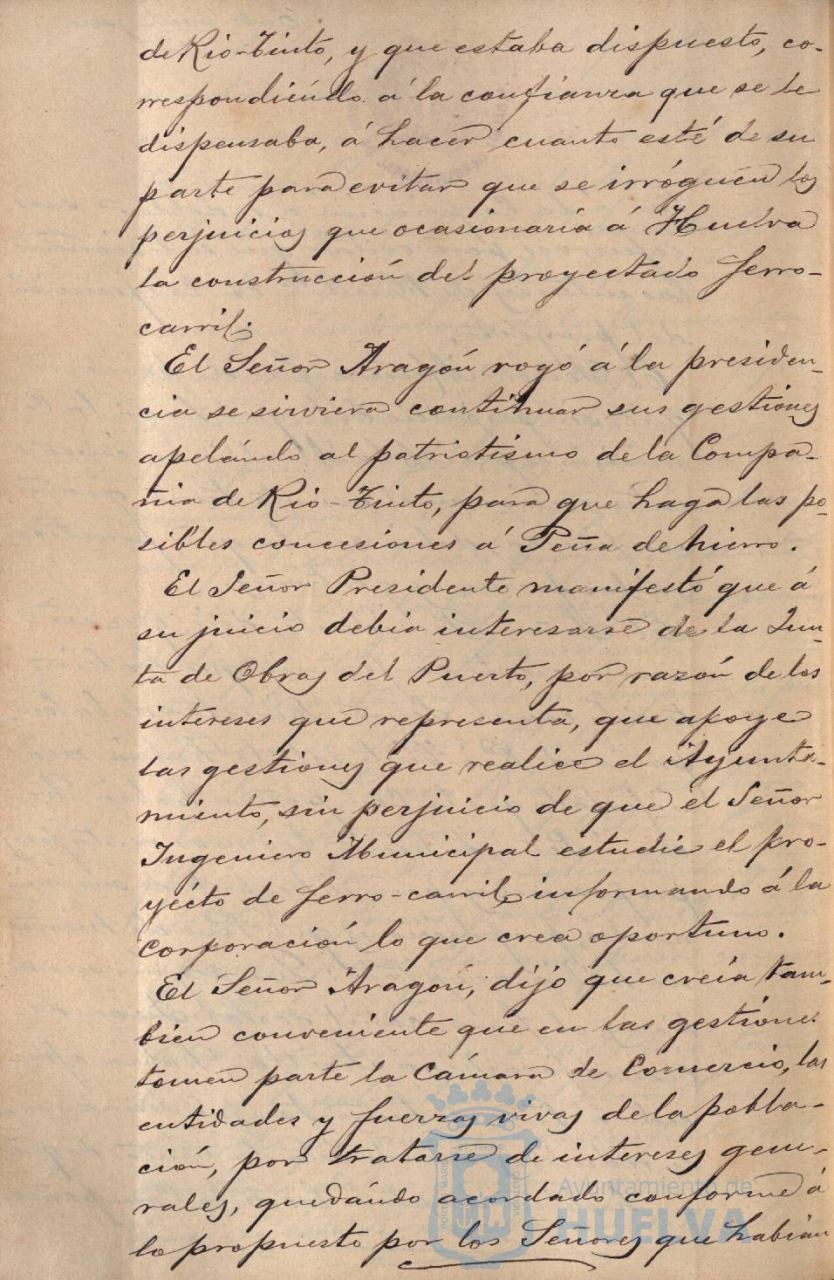 de Rio-Tinto, y que estaba dispuesto, co-
rrespondiéndo á la confianza que se le
dispensaba, á hacer cuanto esté de su
parte para evitar que se irróguen los
perjuicios que ocasionaría á Huelva
la construcción del proyectado ferro-
carril.
El Señor Aragón rogó á la presiden-
cia se sirviera continuar sus gestiones
apelándo al patriotismo de la Compa-
ñia de Rio-Tinto, para que haga las po-
sibles concesiones á Peña de hierro.
El Señor Presidente manifestó que á
su juicio debia interesarse de la Jun-
ta de Obras del Puerto, por razón de los
intereses que representa, que apoye
las gestiones que realice el Ayunta-
miento, sin perjuicio de que el Señor
Ingeniero Municipal estudie el pro-
yécto de ferro-carril, informando á la
Corporación lo que crea oportuno.
El Señor Aragón, dijo que creía tam-
bien conveniente que en las gestiones
tomen parte la Cámara de Comercio, las
entidades y fuerzas vivas de la pobla-
ción, por tratarse de intereses gene-
rales, quedándo acordado conforme á
lo propuesto por los Señores que habian
Ayuntamiento de
HUELVA